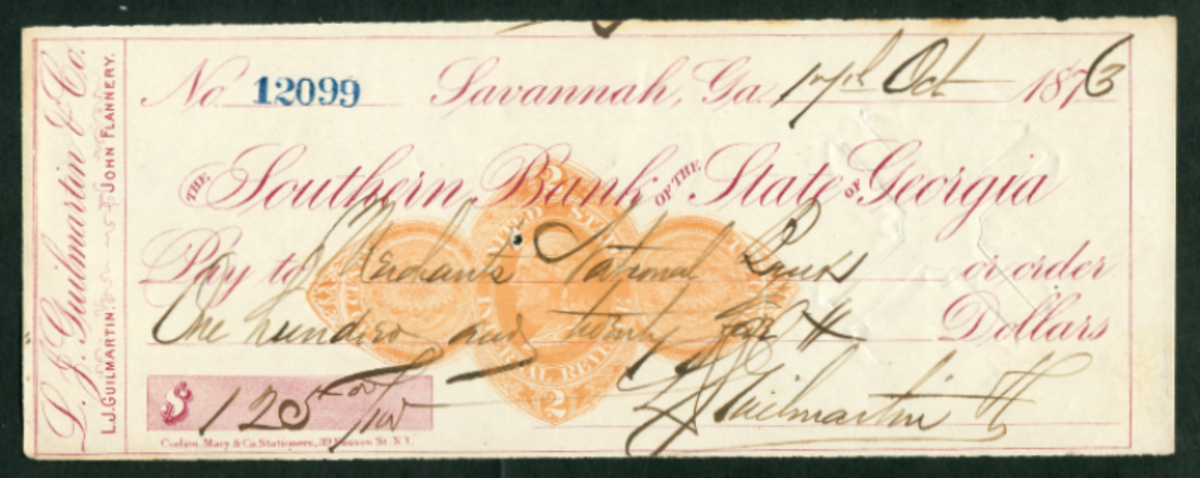 L. J. Guilmartin & Co.
L.J. GUILMARTIN. JOHN FLANNERY.
No. 12099 Savannah, Ga. 17th Oct 1876
THE Southern Bank OF THE State OF Georgia
Pay to Merchants National Bank or order
One hundred and twenty five Dollars
$ 125 00/100
L J Guilmartin & Co
Mary & Co. Stationers, 39 Nassau St. N.Y.
UNITED STATES
INTERNAL REVENUE
2
2